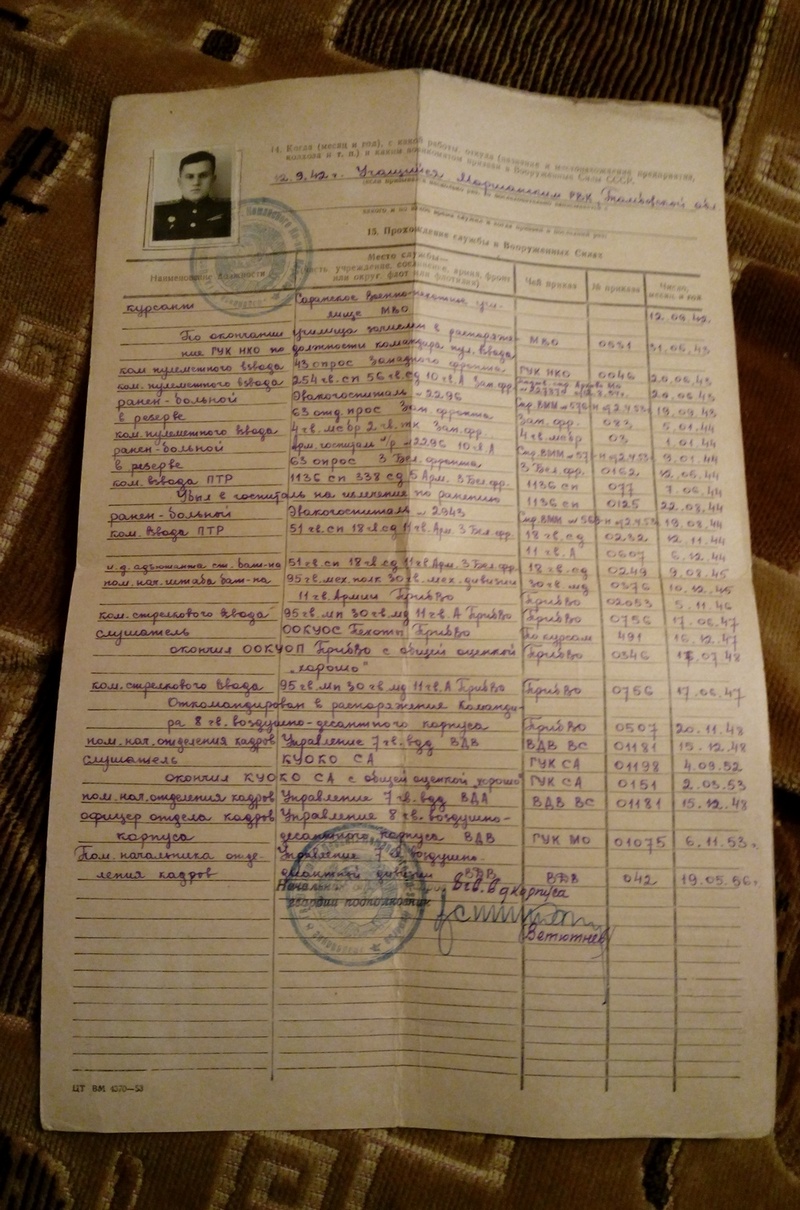 14. Когда (месяц и год), с какой работы, откуда (название и местонахождение предприятия,
колхоза и т. п.) и каким военкоматом призван в Вооруженные Силы СССР.
12.9.42 г. Учащийся Моршанским РВК, Тамбовской обл.
15. Прохождение службы в Вооруженных Силах
Наименование должности Место службы Чей приказ № приказа Число, месяц и год
курсант Саранское военно-пехотное учи-
лище МВО 12.09.42.
По окончании училища зачислен в распоряже- МВО 0531 31.06.43
ние ГУК НКО по должности командира пул. взвода
ком. пулеметного взвода 43 опрос Западного фронта ГУК НКО 0046 20.06.43
ком. пулеметного взвода 254 гв. сп 56 гв. сд 10 гв. А Зап. фр. 20.06.43
ранен-больной Эвакогоспиталь № 2296 19.09.43
в резерве 63 отд. прос Зап. фронта Зап. фр. 083 5.01.44
ком. пулеметного взвода 4 гв. мсбр 2 гв. тк Зап. фр. 4 гв. мсбр 03 1.01.44
ранен-больной Арм. госпиталь № 2296 10 гв. А 9.01.44
в резерве 63 опрос 3 Бел. фронта 3 Бел. фр. 0162 12.06.44
ком. взвода ПТР 1136 сп 338 сд 5 Арм. 3 Бел. фр. 1136 сп 077 7.06.44
Убыл в госпиталь на излечение по ранению 1136 сп 0125 22.08.44
ранен-больной Эвакогоспиталь № 2943 19.08.44
ком. взвода ПТР 51 гв. сп 18 гв. сд 11 гв. Арм. 3 Бел. фр. 18 гв. сд 0232 12.11.44
11 гв. А 0607 6.12.44
и.д. адъютанта ст. бат-на 51 гв. сп 18 гв. сд 11 гв. Арм. 3 Бел. фр. 18 гв. сд 0249 9.08.45
пом. нач. штаба бат-на 95 гв. мех. полк 30 гв. мех. дивизии 30 гв. мд 0376 10.12.45
11 гв. Армии ПрибВО ПрибВО 02053 5.11.46
ком. стрелкового взвода 95 гв. мп 30 гв. мд 11 гв. А ПрибВО ПрибВО 0756 17.06.47
слушатель ООКУОС Пехоты ПрибВО По курсам 491 16.12.47
окончил ООКУОП ПрибВО с общей оценкой ПрибВО 0346 17.07.48
"хорошо"
ком. стрелкового взвода 95 гв. мп 30 гв. мд 11 гв. А ПрибВО ПрибВО 0756 17.06.47
Откомандирован в распоряжение Команди-
ра 8 гв. воздушно-десантного корпуса ПрибВО 0507 20.11.48
пом. нач. отделения кадров Управление 7 гв. вдд ВДВ ВДВ ВС 01181 15.12.48
слушатель КУОКО СА ГУК СА 01198 4.09.52
окончил КУОКО СА с общей оценкой "хорошо" ГУК СА 0151 2.03.53
пом. нач. отделения кадров Управление 7 гв. вдд ВДА ВДВ ВС 01181 15.12.48
офицер отдела кадров Управление 8 гв. воздушно-
корпуса десантного корпуса ВДВ ГУК МО 01075 6.11.53г.
Пом. начальника отде- Управление 7 гв. воздушно-
ления кадров десантной дивизии ВДВ ВДВ 042 19.05.56г.
8 гв. вд корпуса
гвардии подполковник
(Ветютнев)
ЦТ ВМ 4378—53